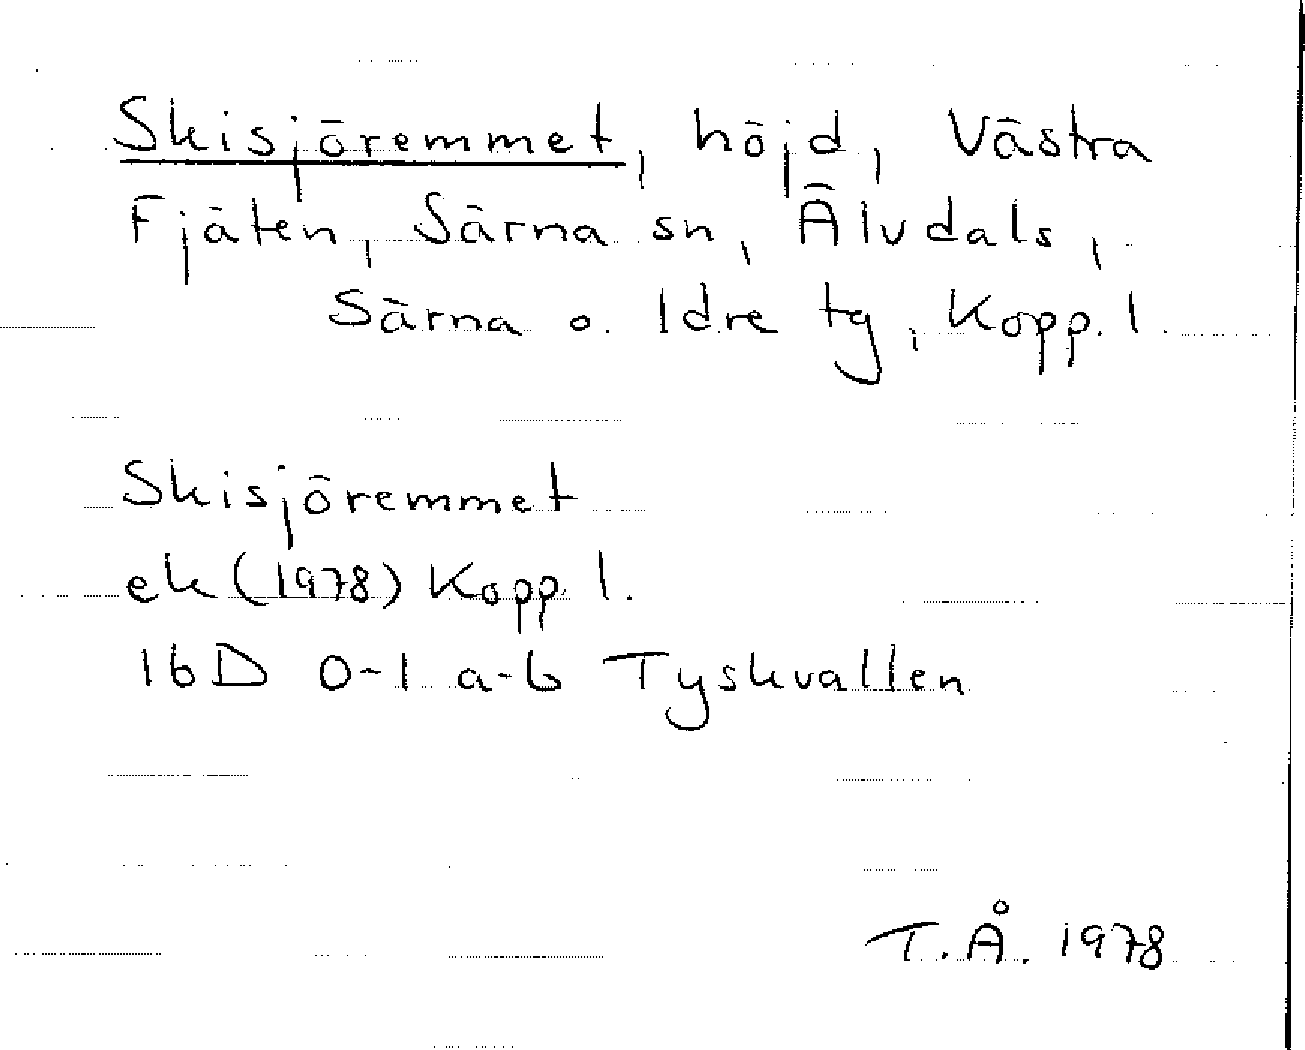 Skisjöremmet, höjd, Västra
Fjäten, Särna sn, Älvdals,
Särna o. Idre tg, Kopp. l.
Skisjöremmet
ek (1978) Kopp. l.
16D 0-1 a-b Tyskvallen
T.Å. 1978